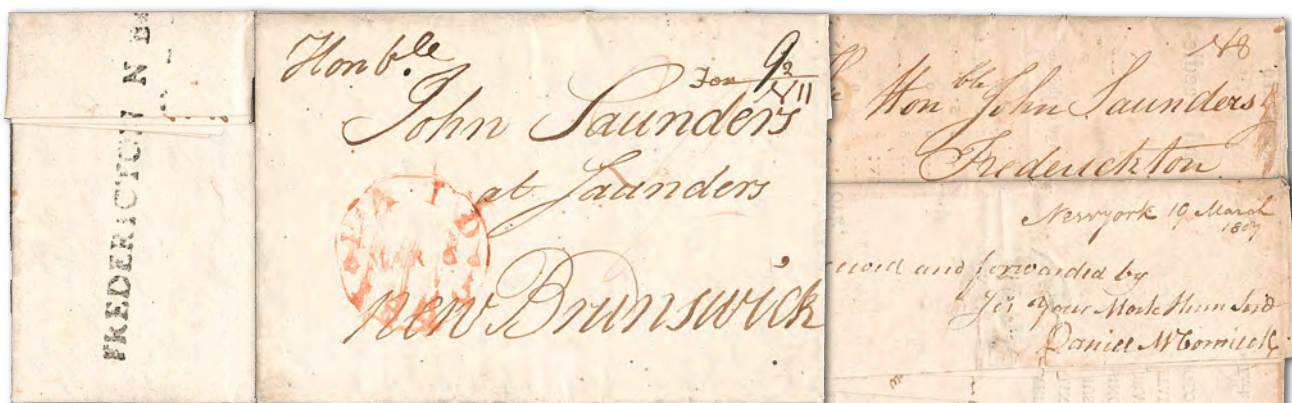 FREDERICTON N B
Honble
John Saunders
at Saunders
New Brunswick
9
N 11
PAID
MAR
N8
Honble John Saunders
Frederickton
Newyork 19 March
1807
and forwarded by
Sir Your Most Hum
Daniel McCormick